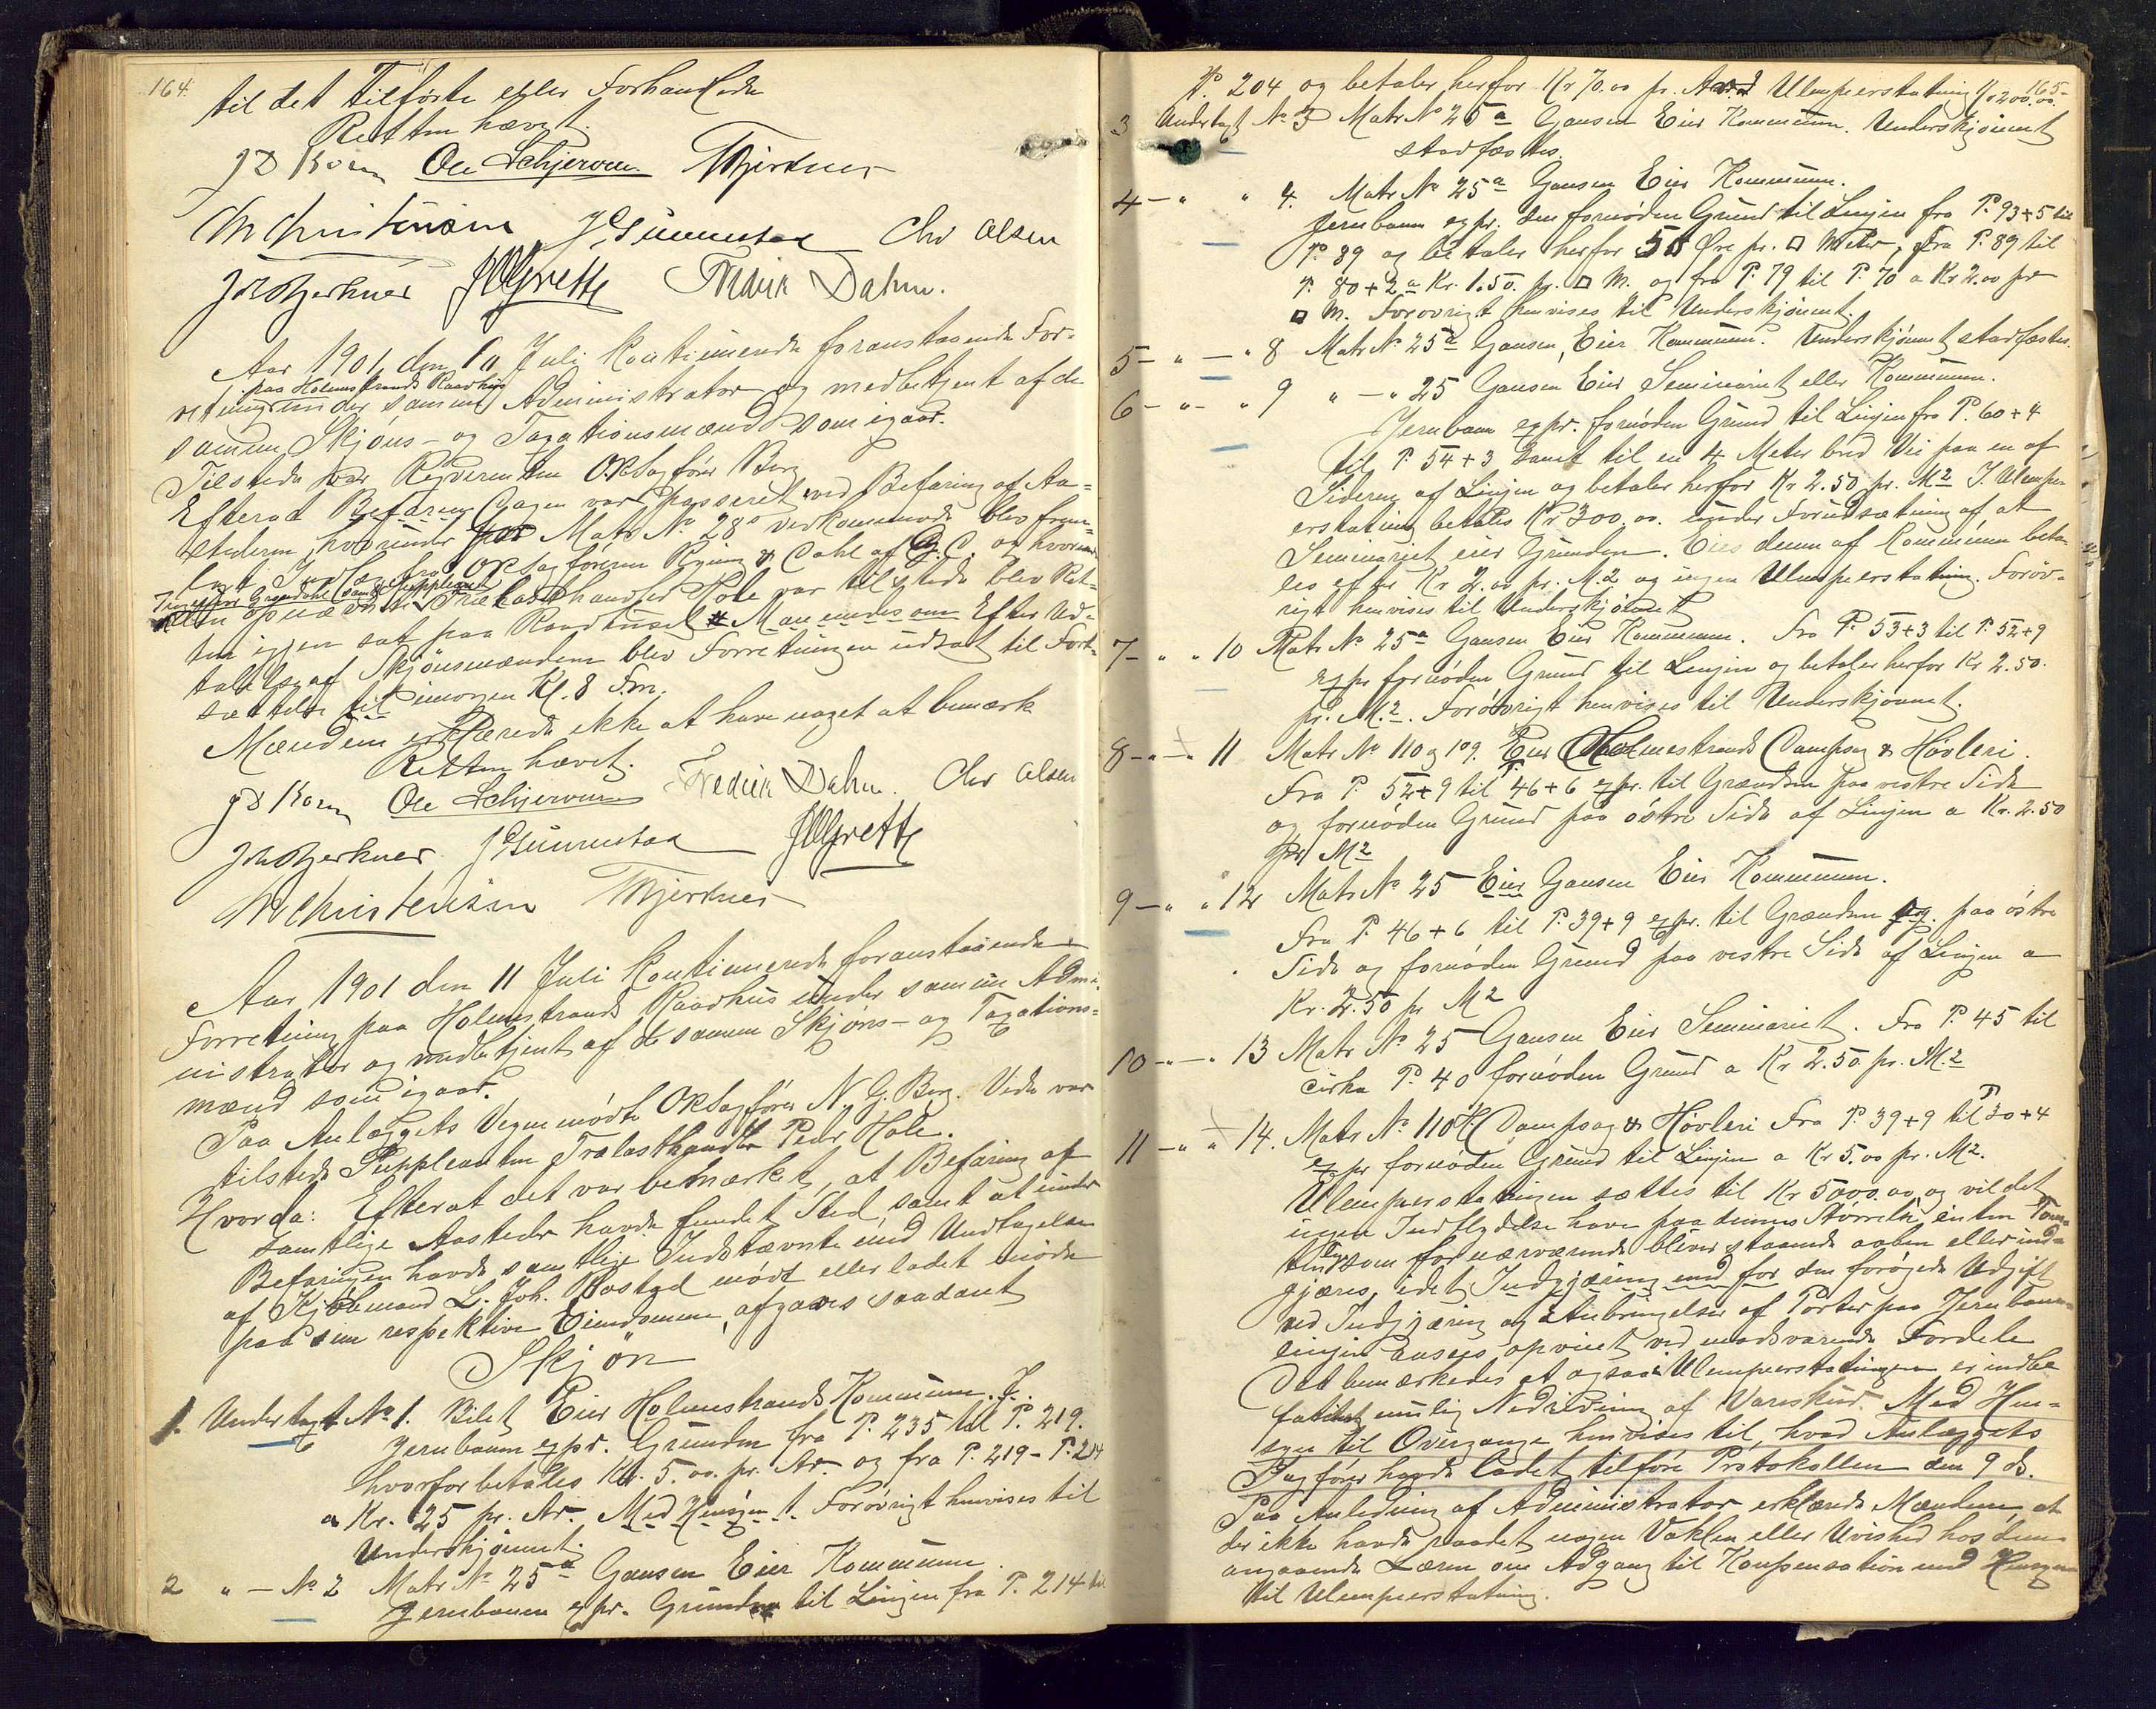 164.
til det Tilførte eller Forhandlede
Retten hævet.
J D Korn Ole Schjerven T Bjerknes
M Christensen J Gunnestad Chr Olsen
Joh Bjerknes Grette Fredrik Dahm.
Aar 1901 den 10 Juli kontinuerede foranstaaende For-
paa Holmestrands Raadhus
retning under samme Administrator og medbetjent af de
samme Skjøns- og Taxationsmænd som igaar.
Tilstede var Rekvirenten ORSagfører Borg
Efterat Befaringen var passeret ved Befaring af Aa-
stederne, hvorunder Matr No 28 vedkommende blev frem-
lagt Indlæg fra ORSagførerne Ryning & Dahl af og hvorunder
samt Suppleant
Trælasthandler Hole var tilstede blev Ret-
ten igjen sat paa Raadhuset. Man enedes om Efter Ud-
talelse af Skjønsmændene blev Forretningen udsat til Fort-
sættelse til imorgen Kl. 8 Fm.
Mændene erklærede ikke at have noget at bemærke
Retten hævet.
J D Korn Ole Schjerven Fredrik Dahm. Chr Olsen
Joh Bjerknes J Gunnestad Grette
M Christensen T Bjerknes
Aar 1901 den 11 Juli kontinuerede foranstaaende
Forretning paa Holmestrands Raadhus under samme Admi-
nistrator og medbetjent af de samme Skjøns- og Taxations-
mænd som igaar.
Paa Anlæggets Vegne mødte ORSagfører N. G. Borg. Videre var
tilstede Suppleanten Trælasthandler Peder Hole.
Hvorda: Efterat det var bemærket, at Befaring af
samtlige Aasteder havde fundet Sted, samt at under
Befaringen havde samtlige Indstævnte med Undtagelse
af Kjøbmand L. Joh. Rostad mødt eller ladet møde
paa sine respektive Eiendomme, afgaves saadant
Skjøn
1. Undertagt No 1. Bilet Eier Holmestrands Kommune.
Jernbanen expr. Grunden fra P. 235 til P. 219.
hvorfor betales Kr. 5.00 pr. Ar og fra P. 219 - P. 214
a Kr. 25 pr. Ar. Med Hensyn t. Forøvrigt henvises til
Underskjønnet.
2 " - No 2 Matr No 25a Gausen Eier Kommunen.
Jernbanen expr. Grunden til Linjen fra P. 214 til
165-
P. 204 og betaler herfor Kr 70.00 pr. Ar Ulempeerstatning Kr 200.00.
3 Undertagt No 3 Matr No 25a Gausen Eier Kommunen. Underskjønnet
stadfæstes.
4 - " " 4. Matr No 25a Gausen Eier Kommunen.
Jernbanen expr. den fornødne Grund til Linjen fra P. 93+5 til
P. 89 og betaler herfor 50 Øre pr. □ Meter, fra P. 89 til
P. 80+2 a Kr. 1.50. pr. □ M. og fra P. 79 til P. 70 a Kr 2.00 pr
□ M. Forøvrigt henvises til Underskjønnet.
5 - " - " 8 Matr No 25a Gausen, Eier Kommunen. Underskjønnet stadfæstes.
6 - " - " 9 " - " 25 Gausen Eier Seminariet eller Kommunen.
Jernbanen expr. fornøden Grund til Linjen fra P. 60+4
til P. 54+3 samt til en 4 Meter bred Vei paa en af
Siderne af Linjen og betaler herfor Kr 2.50 pr. M2 I Ulempe-
erstatning betales Kr 300.00. under Forudsætning af at
Seminariet eier Grunden. Eies denne af Kommunen beta-
les efter Kr 2.00 pr. M.2 og ingen Ulempeerstatning. Forøv-
rigt henvises til Underskjønnet
7 - " " 10 Matr No 25a Gausen Eier Kommunen. Fra P. 53+3 til P. 52+9
expr fornøden Grund til Linjen og betaler herfor Kr 2.50.
pr. M.2. Forøvrigt henvises til Underskjønnet.
8 - " - " 11 Matr No 110 og 109. Eier Holmestrands Dampsag & Høvleri.
Fra P. 52+9 til P. 46+6 expr. til Grændsen paa vestre Side
og fornøden Grund paa østre Side af Linjen a Kr. 2.50
pr M2
9 - " " 12 Matr No 25 Eier Gausen Eier Kommunen.
Fra P. 46+6 til P. 39+9 expr. til Grændsen paa østre
Side og fornøden Grund paa vestre Side af Linjen a
Kr. 2.50 pr M2
10 - " - " 13 Matr No 25 Gausen Eier Seminariet. Fra P. 45 til
cirka P. 40 fornøden Grund a Kr 2.50 pr. M.2
11 - " " 14. Matr No 110 H. Dampsag & Høvleri Fra P. 39+9 til P 30+4
expr fornøden Grund til Linjen a Kr 5.00 pr. M2.
Ulempeerstatningen sættes til Kr 5000.00, og vil det
ingen Indflydelse have paa dennes Størrelse, enten Tom-
ten som for nærværende bliver staaende aaben eller ind-
gjæres, idet Indgjæring med for den forøgede Udgift
ved Indgjæring og Anbringelse af Porter paa Jernbane-
linjen ansees opveiet ved modsvarende Fordele
Det bemærkedes at ogsaa i Ulempeerstatningen er indbe
fattet mulig Nedridning af Vareskur. Med Hen-
syn til Overgange henvises til, hvad Anlæggets
Sagfører havde ladet tilføre Protokollen den 9 ds.
Paa Anledning af Administrator erklærede Mændene, at
der ikke havde raadet nogen Vaklen eller Uvished hos dem
angaaende Læren om Adgang til Kompensation med Hensyn
til Ulempeerstatning.